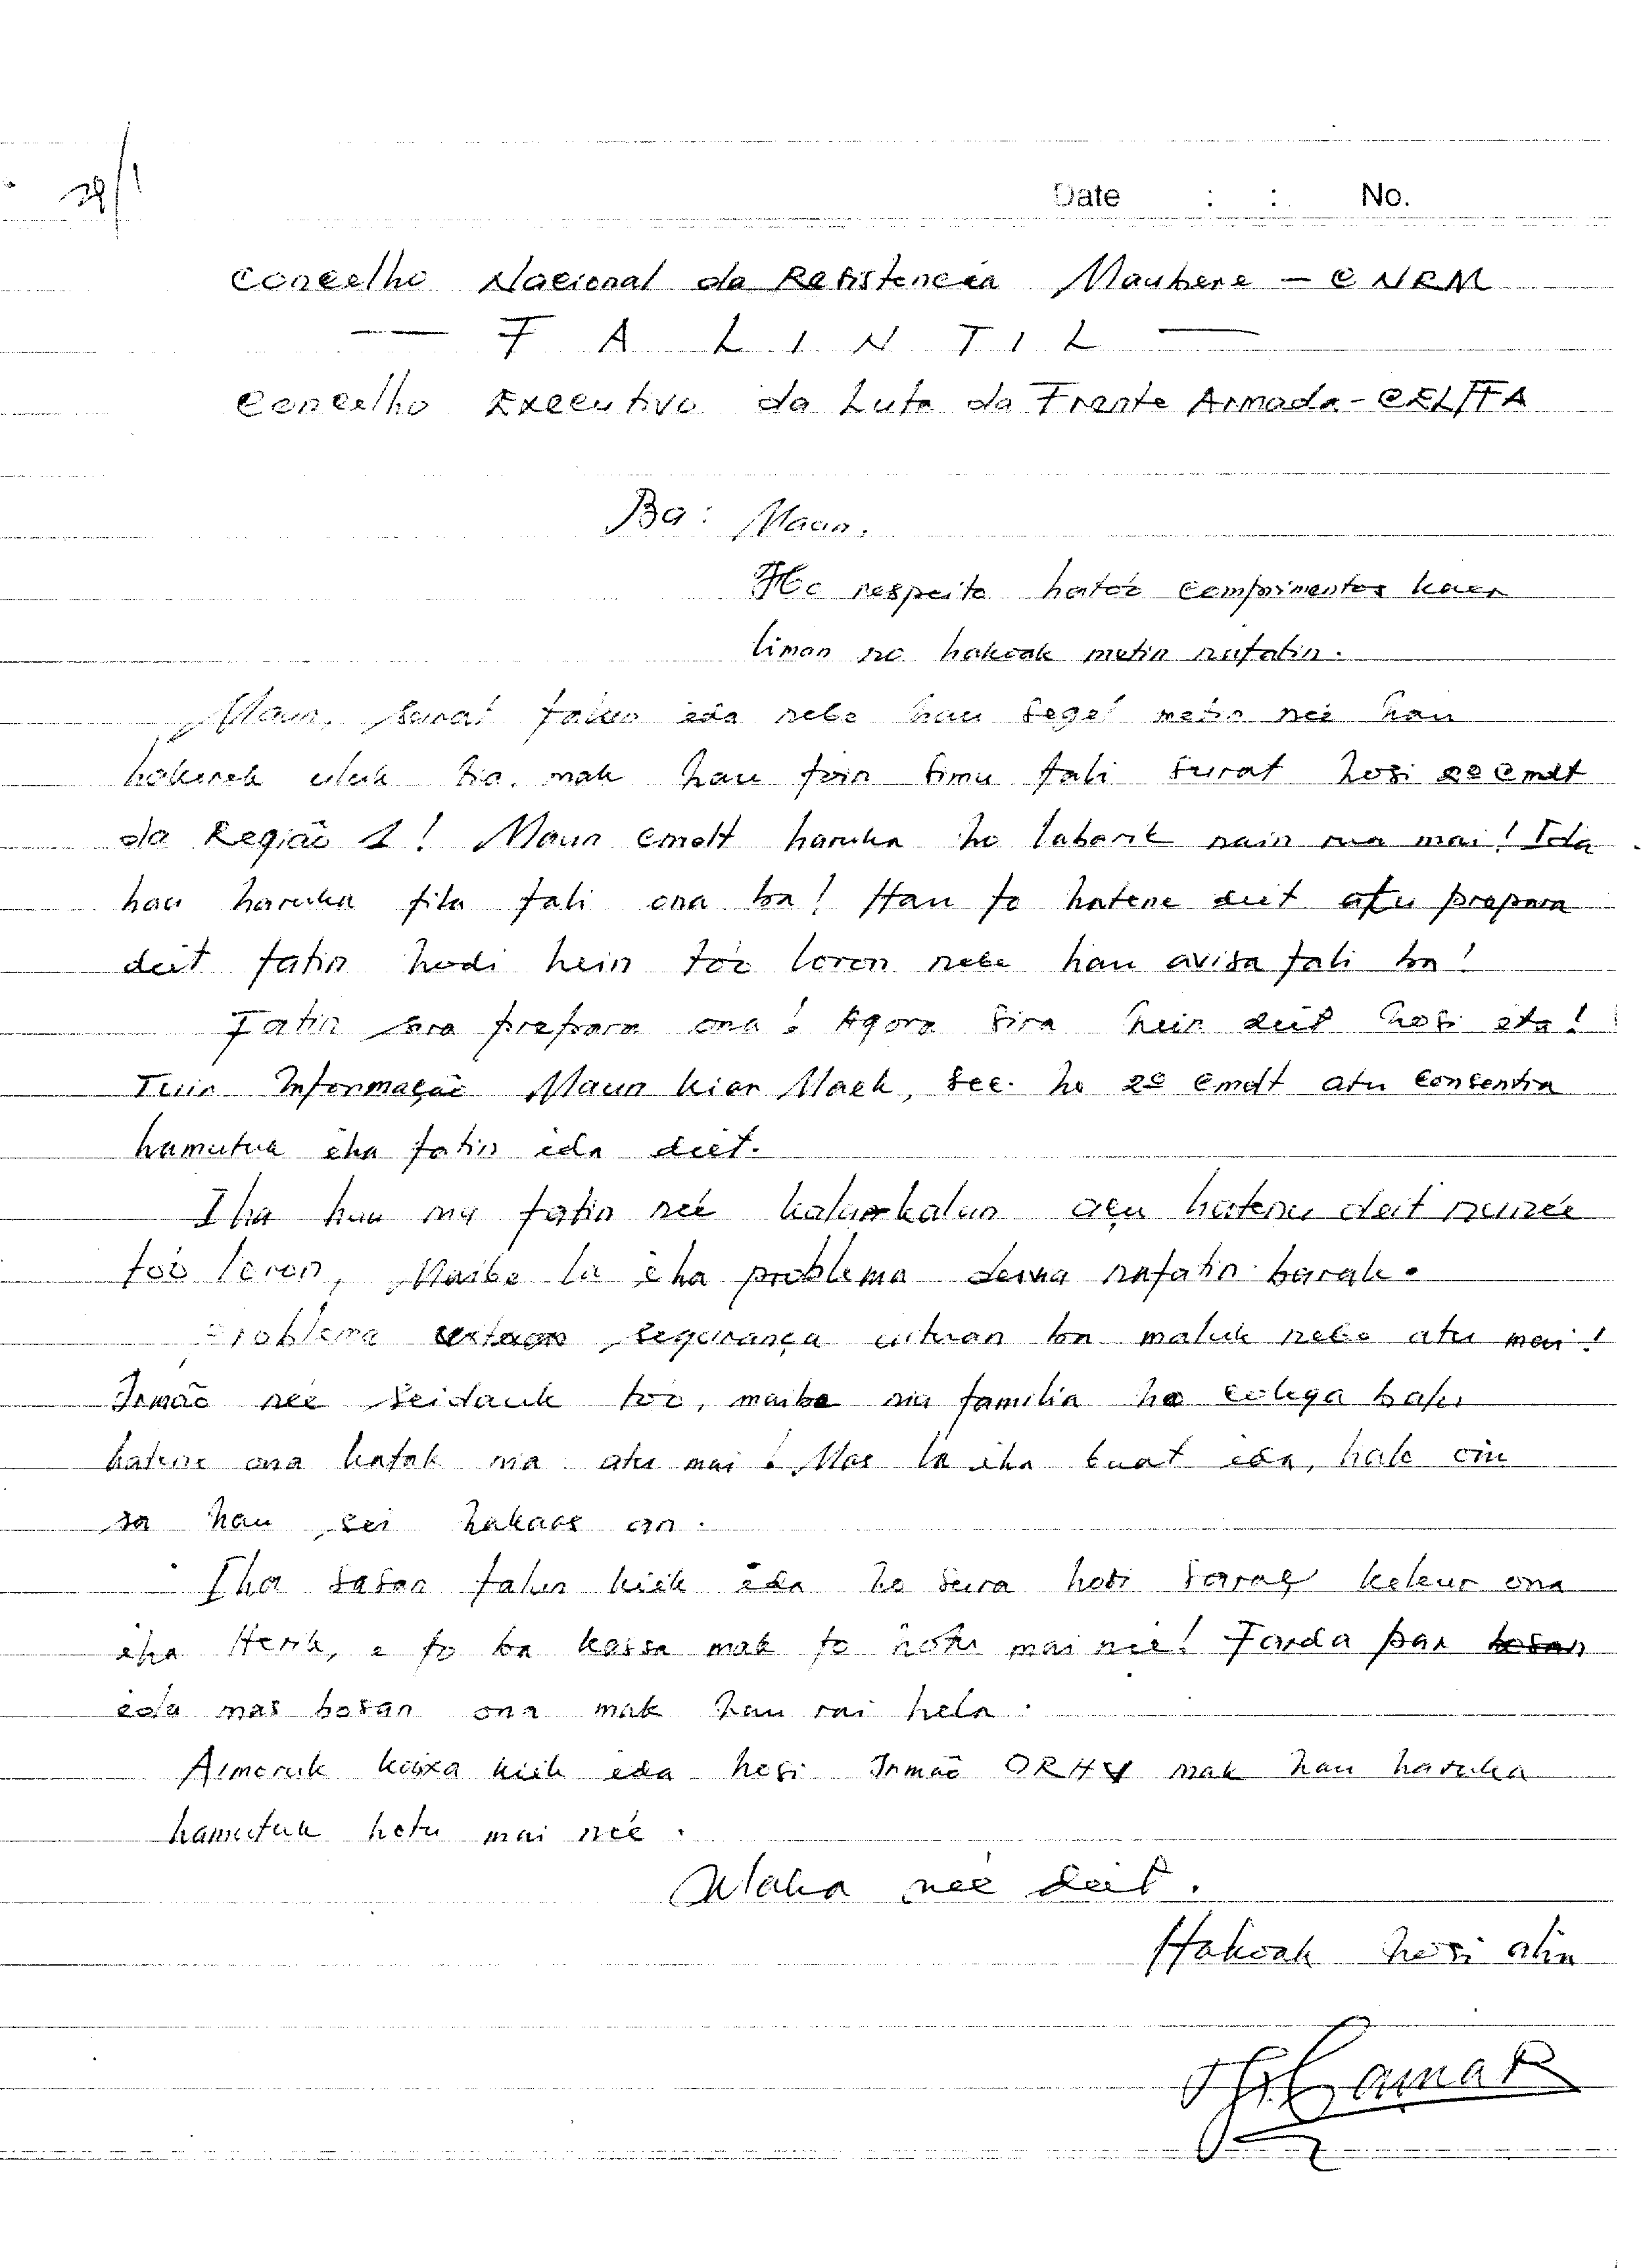 Date : : No.
Concelho Nacional da Resistencia Maubere – CNRM
— F A L I N T I L —
Concelho Executivo da Luta da Frente Armada – CEL/FA
Ba: Maun.
Ho respeito hatoó comprimentos kaer
liman no hakoak metin nafatin.
Maun, surat falun ida nebe hau metin neé hau
hakerek uluk tia. mak hau foin simu fali surat hosi 2º Cmdt
da Região 1! Maun Cmdt haruka ho labarik nain rua mai! Ida
hau haruka fila fali ona ba! Hau fo hatene deit atu prepara
deit fatin hodi hein toó loron nebe hau avisa fali ba!
Fatin sira prepara ona! Agora sira hein deit hosi ita!
Tuir Informação Maun Lian Maek, Sec. ho 2º Cmdt atu consentra
hamutuk iha fatin ida deit.
Iha hau nia fatin neé kalan-kalan asu hatenu deit nuneé
toó loron, Maibe la iha problema nafatin barak.
Problema segurança uituan ba maluk nebe atu mai!
Irmão neé seidauk toó, maibe nia familia ho colega balu
hatene ona katak nia atu mai! Mas la iha buat ida, halo oin
sa hau sei hakaas an.
Iha sasan falun kiik ida ho sura hosi kleur ona
iha Herik, e fo ba kassa mak fo hotu mai neé! Farda par
ida mas bosan ona mak hau rai hela.
Aimoruk kaixa kiik ida hosi Irmão mak hau haruka
hamutuk hotu mai neé.
Maka neé deit.
Hakoak hosi alin